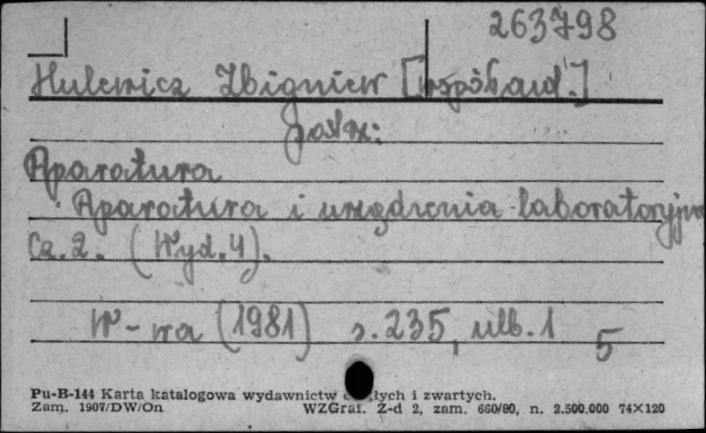 263798
Hulewicz Zbigniew [współaut.]
patrz:
Aparatura
Aparatura i urządzenia laboratoryjne
Cz. 2. (Wyd. 4).
W-wa (1981) s. 235, nlb. 1 5
Pu-B-144 Karta katalogowa wydawnictw i zwartych.
Zam. 1907/DW/On WZGraf. Z-d 2, zam. 660/80, n. 2.500.000 74×120